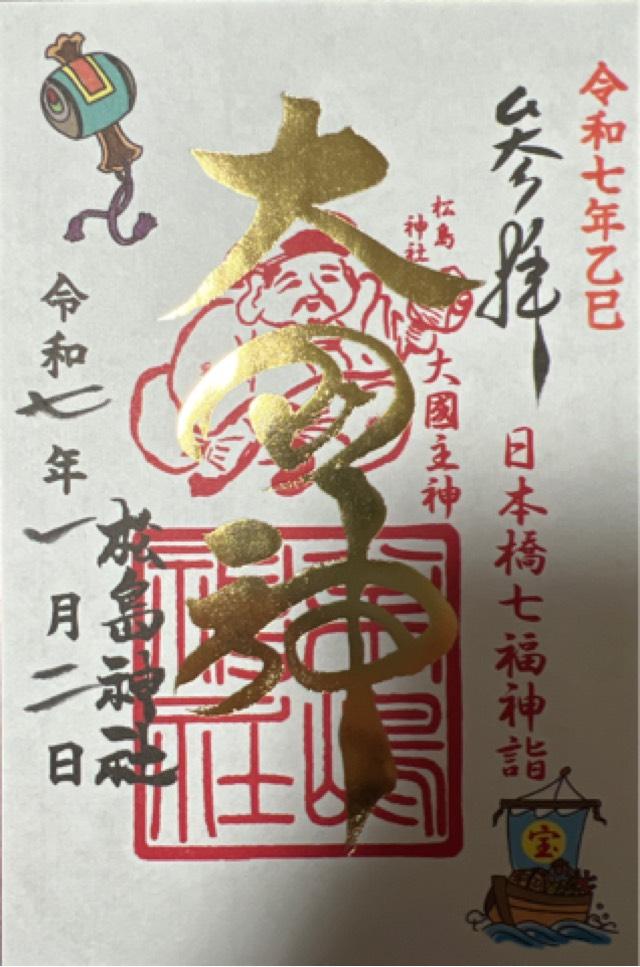 令和七年乙巳
参拝
日本橋七福神詣
宝
松島
神社
大國主神
大国神
松島神社
松嶋
神社
令和七年一月二日